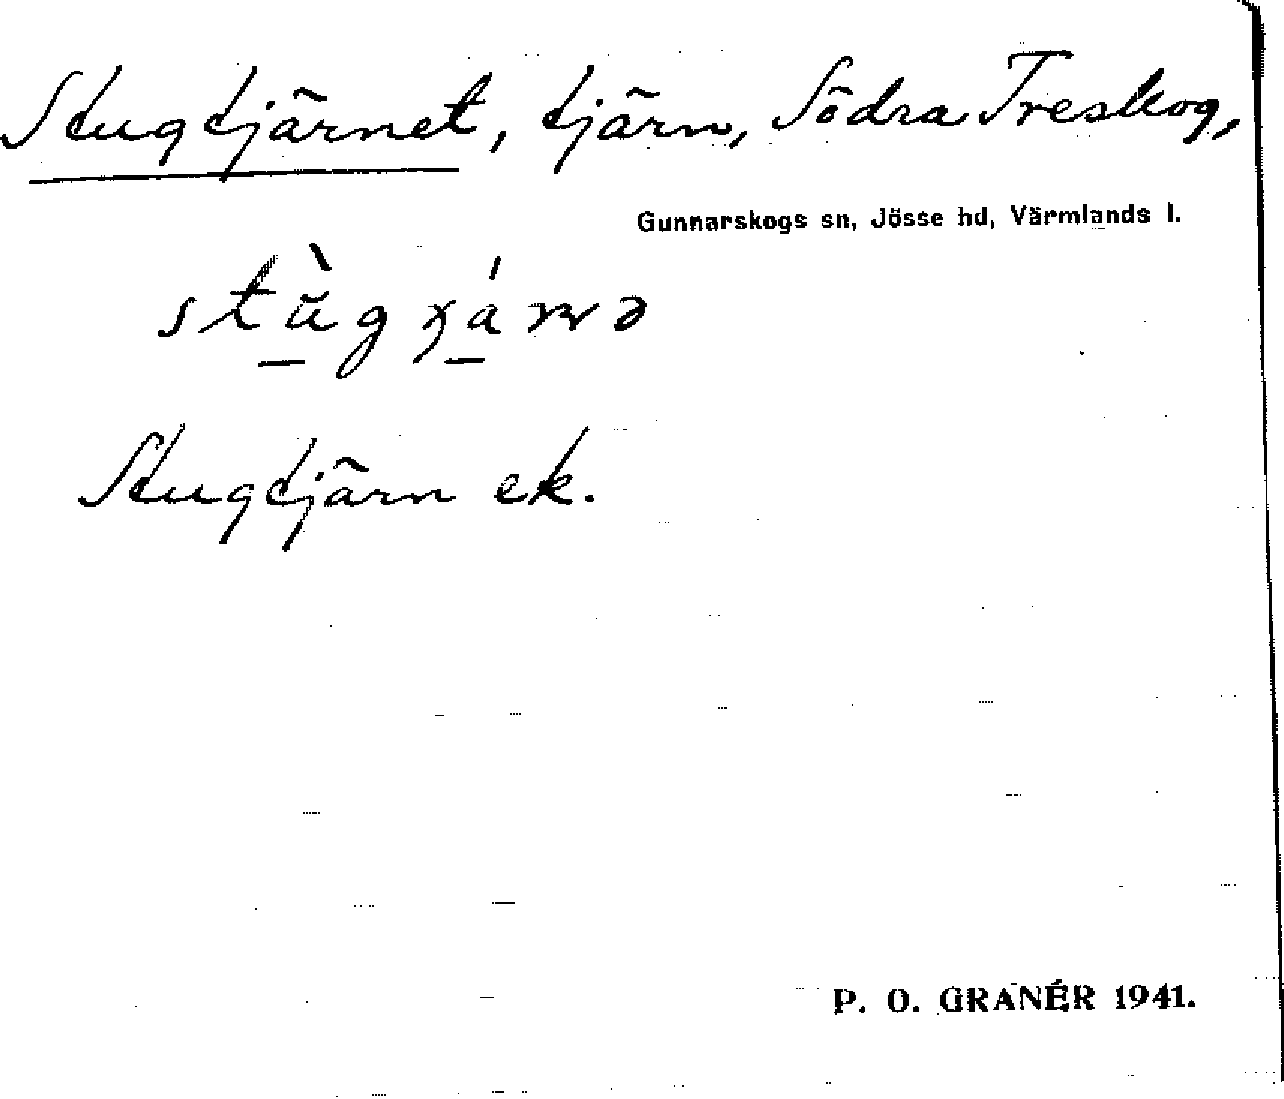 Stugtjärnet, tjärn, Södra Treskog,
Gunnarskogs sn, Jösse hd, Värmlands l.
Stugtjärn ek.
P. O. GRANÉR 1941.